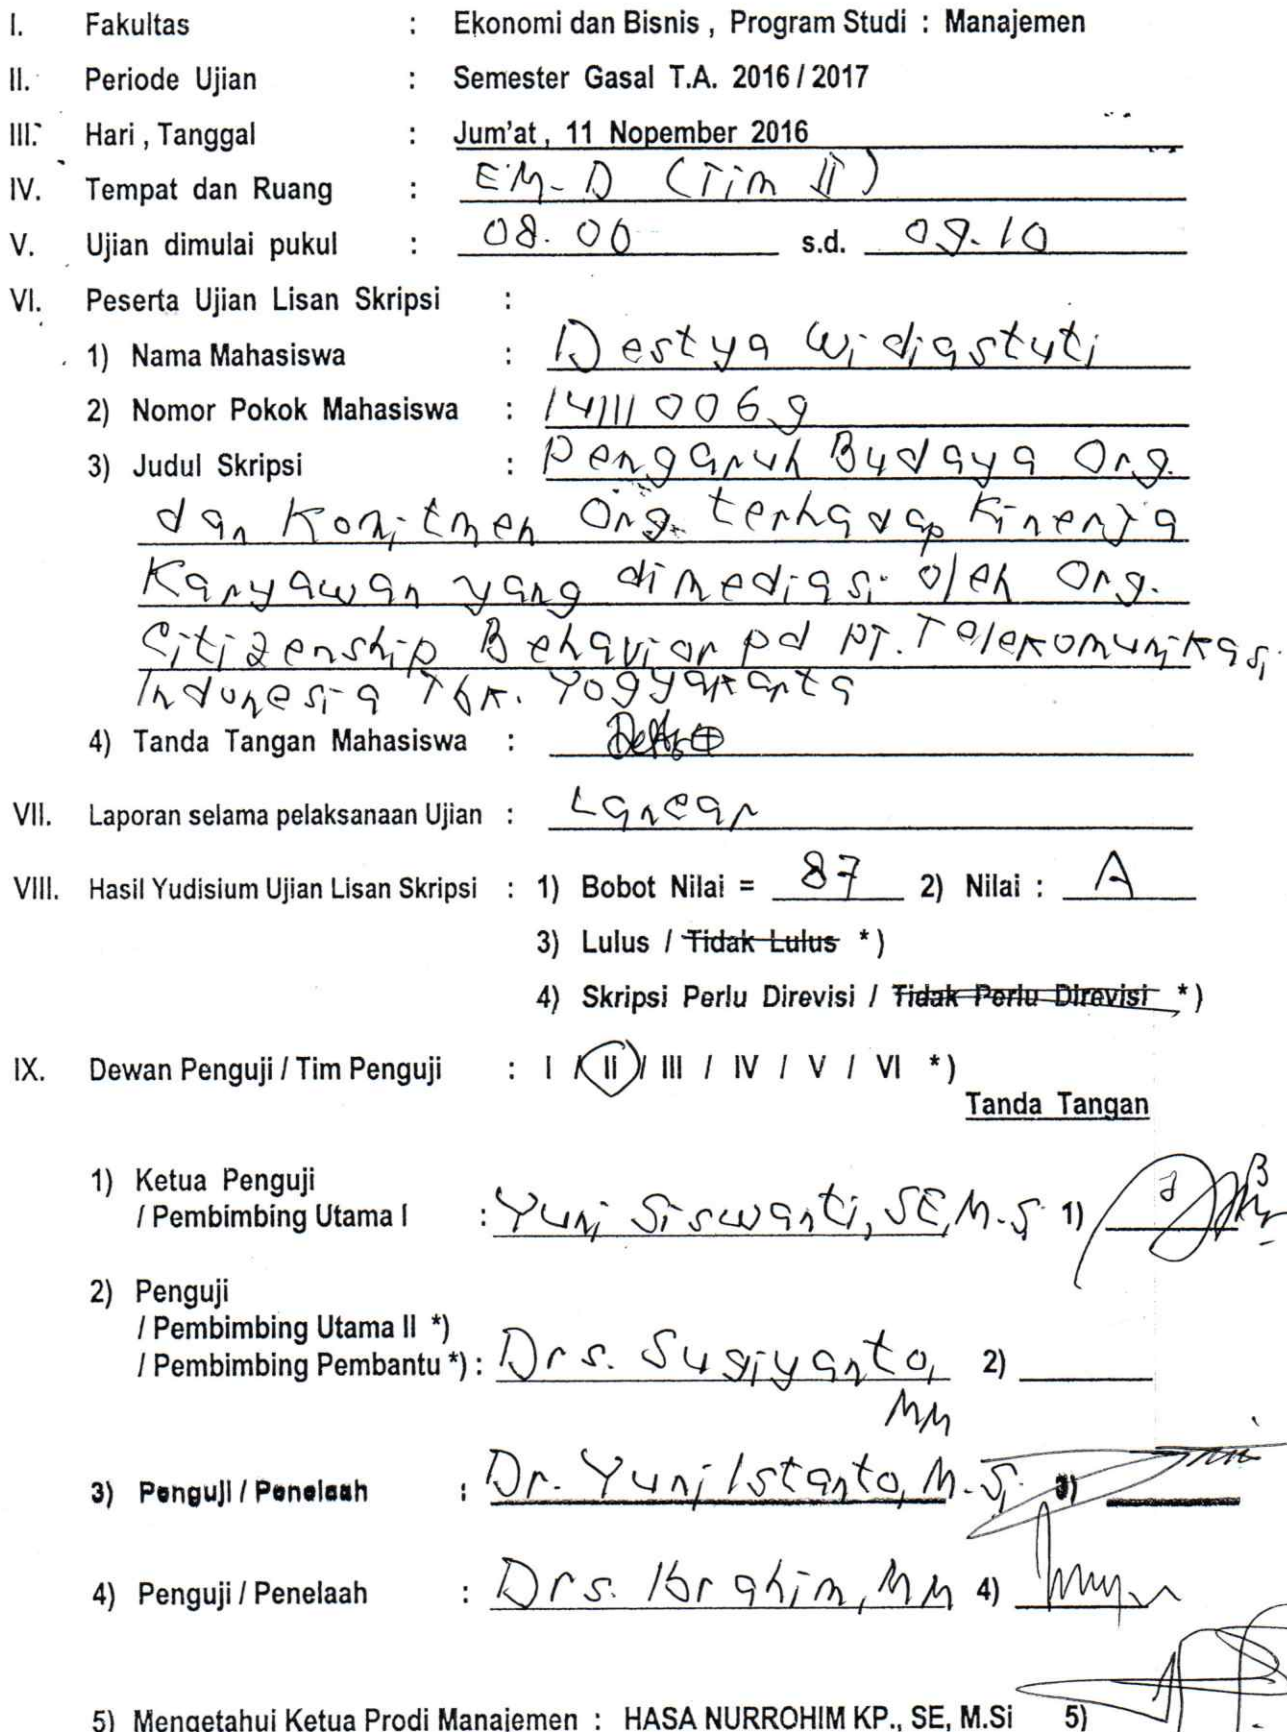 I. Fakultas : Ekonomi dan Bisnis , Program Studi : Manajemen
II. Periode Ujian : Semester Gasal T.A. 2016 / 2017
III. Hari , Tanggal : Jum'at , 11 Nopember 2016
IV. Tempat dan Ruang : EM-D (Tim II)
V. Ujian dimulai pukul : 08.00 s.d. 09.10
VI. Peserta Ujian Lisan Skripsi :
1) Nama Mahasiswa : Destya Widiastuti
2) Nomor Pokok Mahasiswa : 141110069
3) Judul Skripsi : Pengaruh Budaya Org.
dan Komitmen Org. terhadap Kinerja
Karyawan yang dimediasi oleh Org.
Citizenship Behavior pd PT. Telekomunikasi
Indonesia Tbk. Yogyakarta
4) Tanda Tangan Mahasiswa :
VII. Laporan selama pelaksanaan Ujian : Lancar
VIII. Hasil Yudisium Ujian Lisan Skripsi : 1) Bobot Nilai = 87 2) Nilai : A
3) Lulus / Tidak Lulus *)
4) Skripsi Perlu Direvisi / Tidak Perlu Direvisi *)
IX. Dewan Penguji / Tim Penguji : I / II / III / IV / V / VI *)
Tanda Tangan
1) Ketua Penguji
/ Pembimbing Utama I : Yuni Siswanti, SE, M.Si 1)
2) Penguji
/ Pembimbing Utama II *)
/ Pembimbing Pembantu *) : Drs. Sugiyanto, 2)
MM
3) Penguji / Penelaah : Dr. Yuni Istanto, M.Si 3)
4) Penguji / Penelaah : Drs. Ibrahim, MM 4)
5) Mengetahui Ketua Prodi Manajemen : HASA NURROHIM KP., SE, M.Si 5)